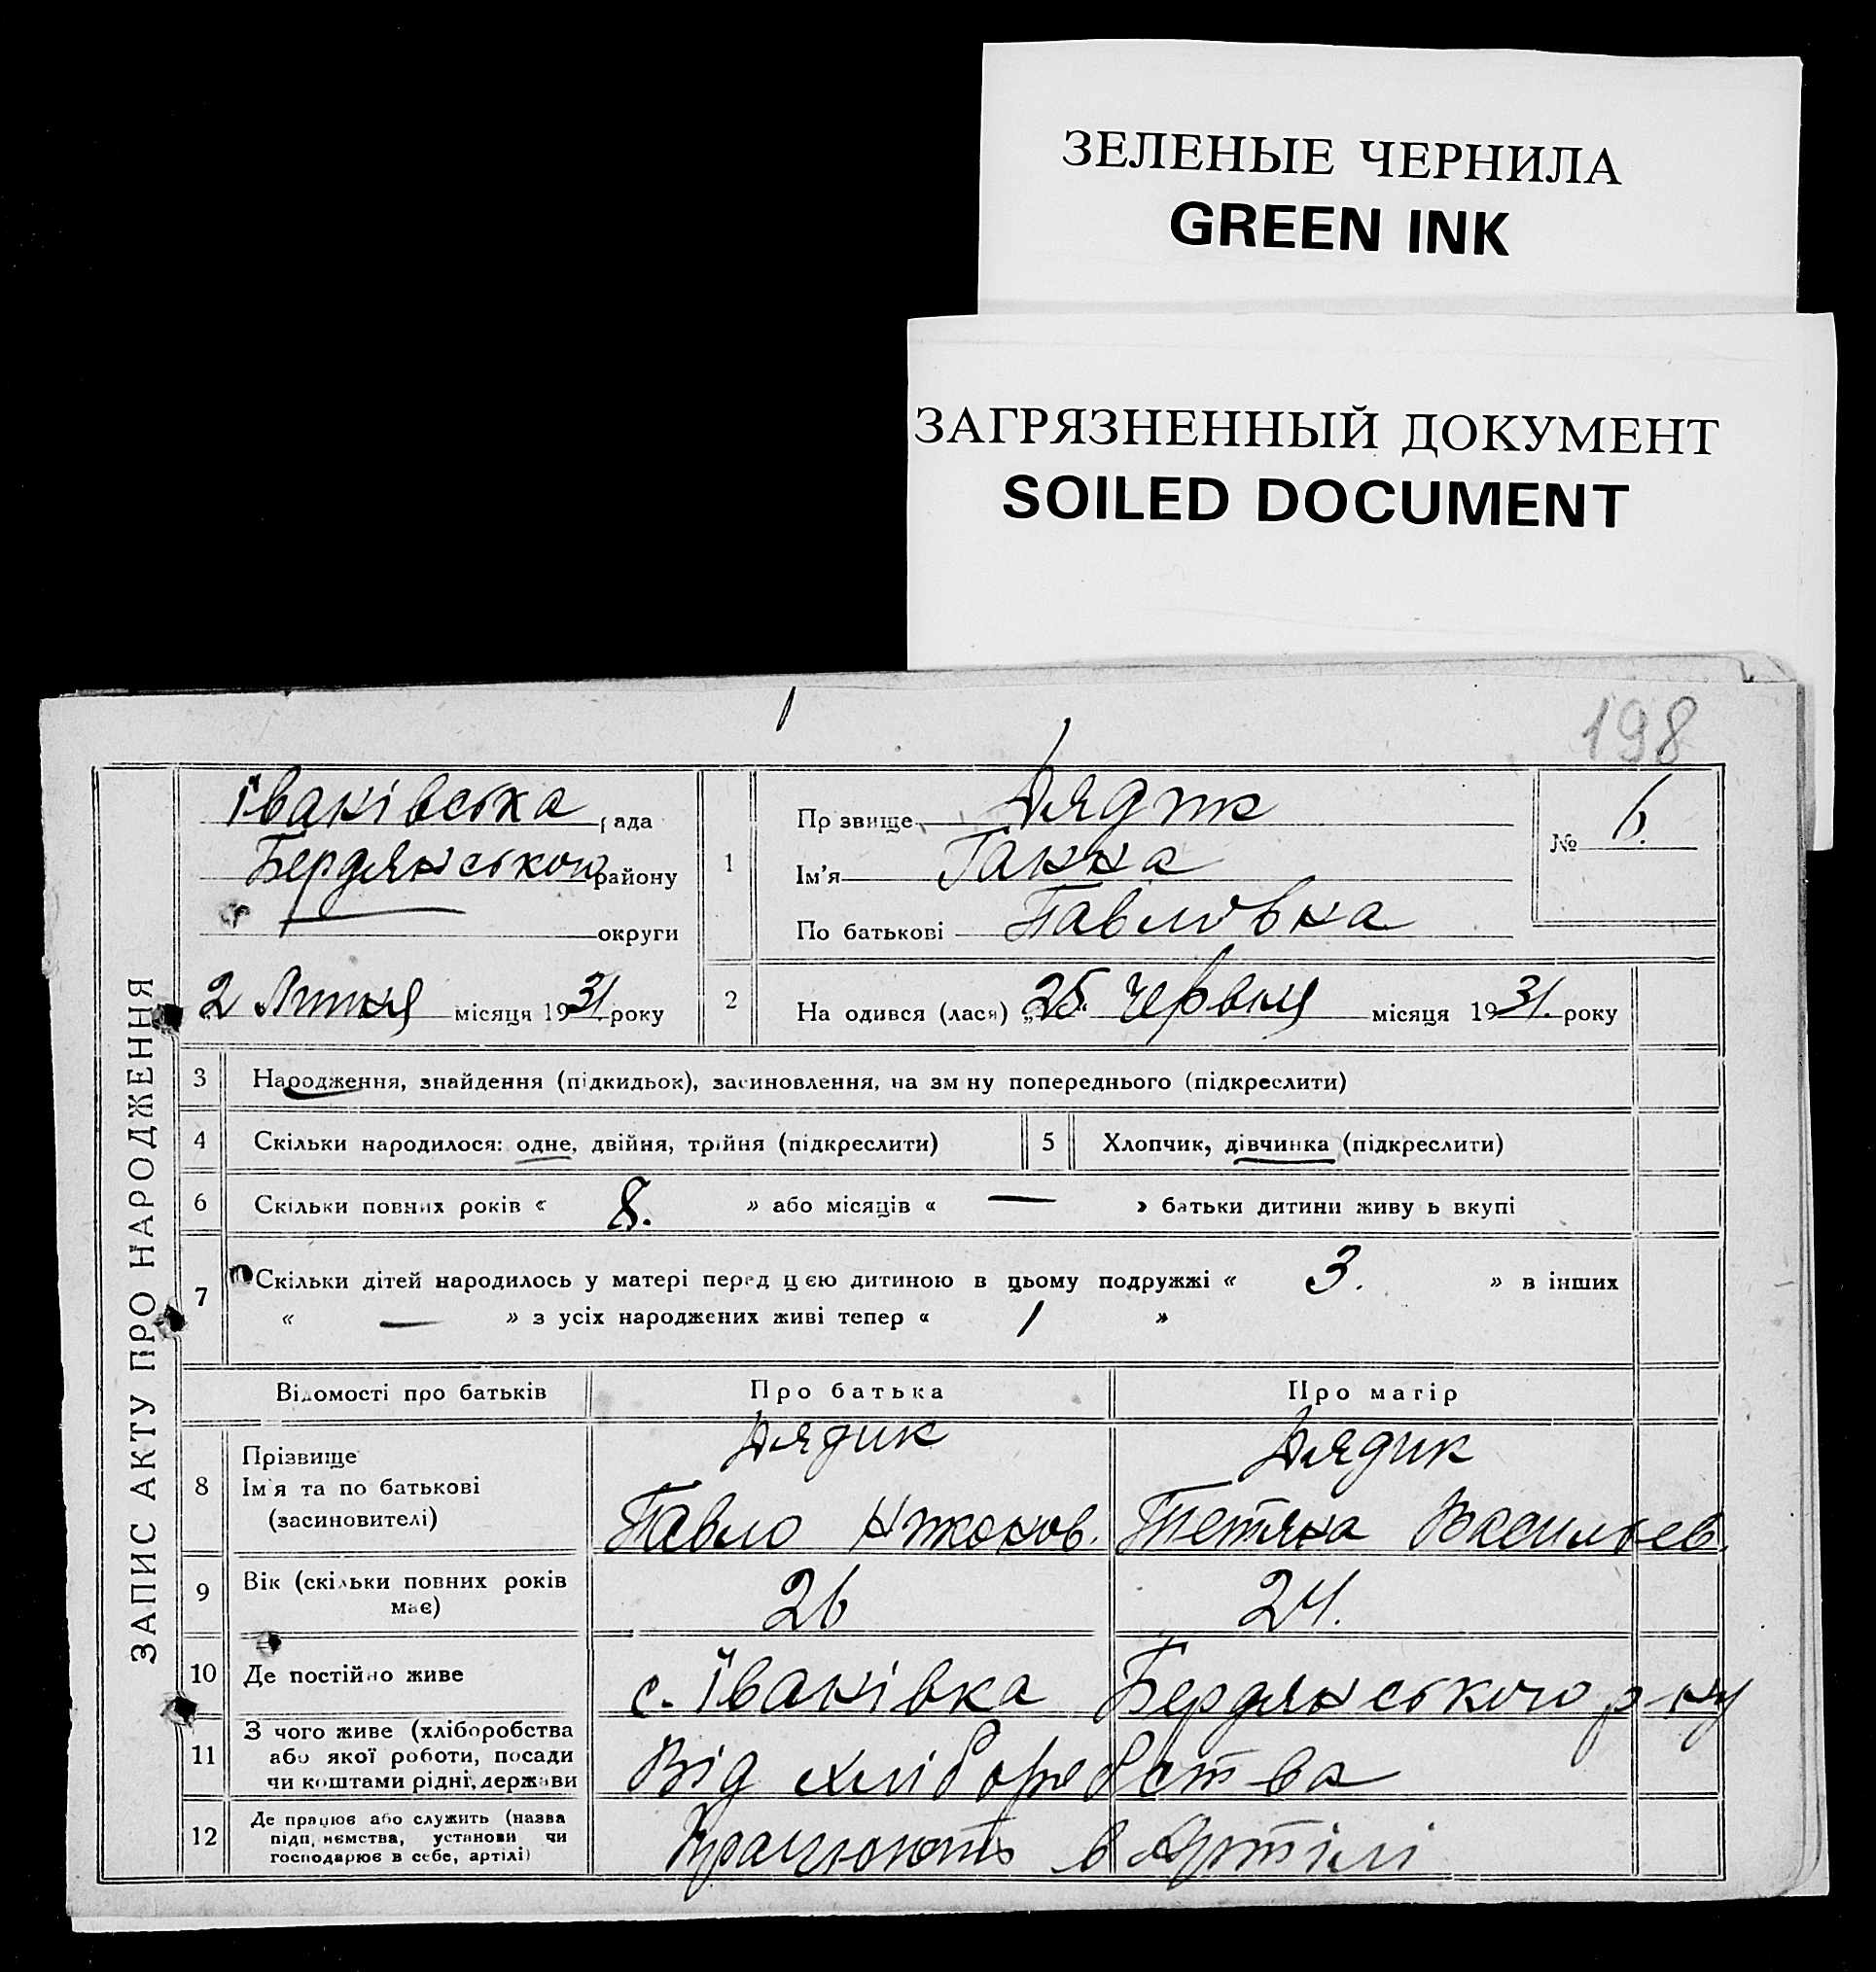 ЗЕЛЕНЫЕ ЧЕРНИЛА
GREEN INK
ЗАГРЯЗНЕННЫЙ ДОКУМЕНТ
SOILED DOCUMENT
198
ЗАПИС АКТУ ПРО НАРОДЖЕННЯ
Іванівська рада
Бердянського району
округи
2 Липня місяця 1931 року
1
Прзвище Дядик
Ім'я Ганна
По батькові Павловна
№ 6.
2
На одився (лася) „25" Червня місяця 1931. року
3 Народження, знайдення (підкидьок), засиновлення, на зм ну попереднього (підкреслити)
4 Скільки народилося: одне, двійня, трійня (підкреслити) 5 Хлопчик, дівчинка (підкреслити)
6 Скільки повних років « 8. » або місяців « — » батьки дитини живу ь вкупі
7 Скільки дітей народилось у матері перед цею дитиною в цьому подружжі « 3. » в інших
« — » з усіх народжених живі тепер « 1 »
Відомості про батьків Про батька Про матір
8 Прізвище Дядик Дядик
Ім'я та по батькові
(засиновителі) Павло Тетяна Васильев.
9 Вік (скільки повних років має) 26 24.
10 Де постійно живе с. Іванівка Бердянського р-ну
11 З чого живе (хліборобства
або якої роботи, посади
чи коштами рідні, держави Від хліборобства
12 Де працює або служить (назва
підп, иємства, установи чи
господарює в себе, артілі) Працюють в Артілі